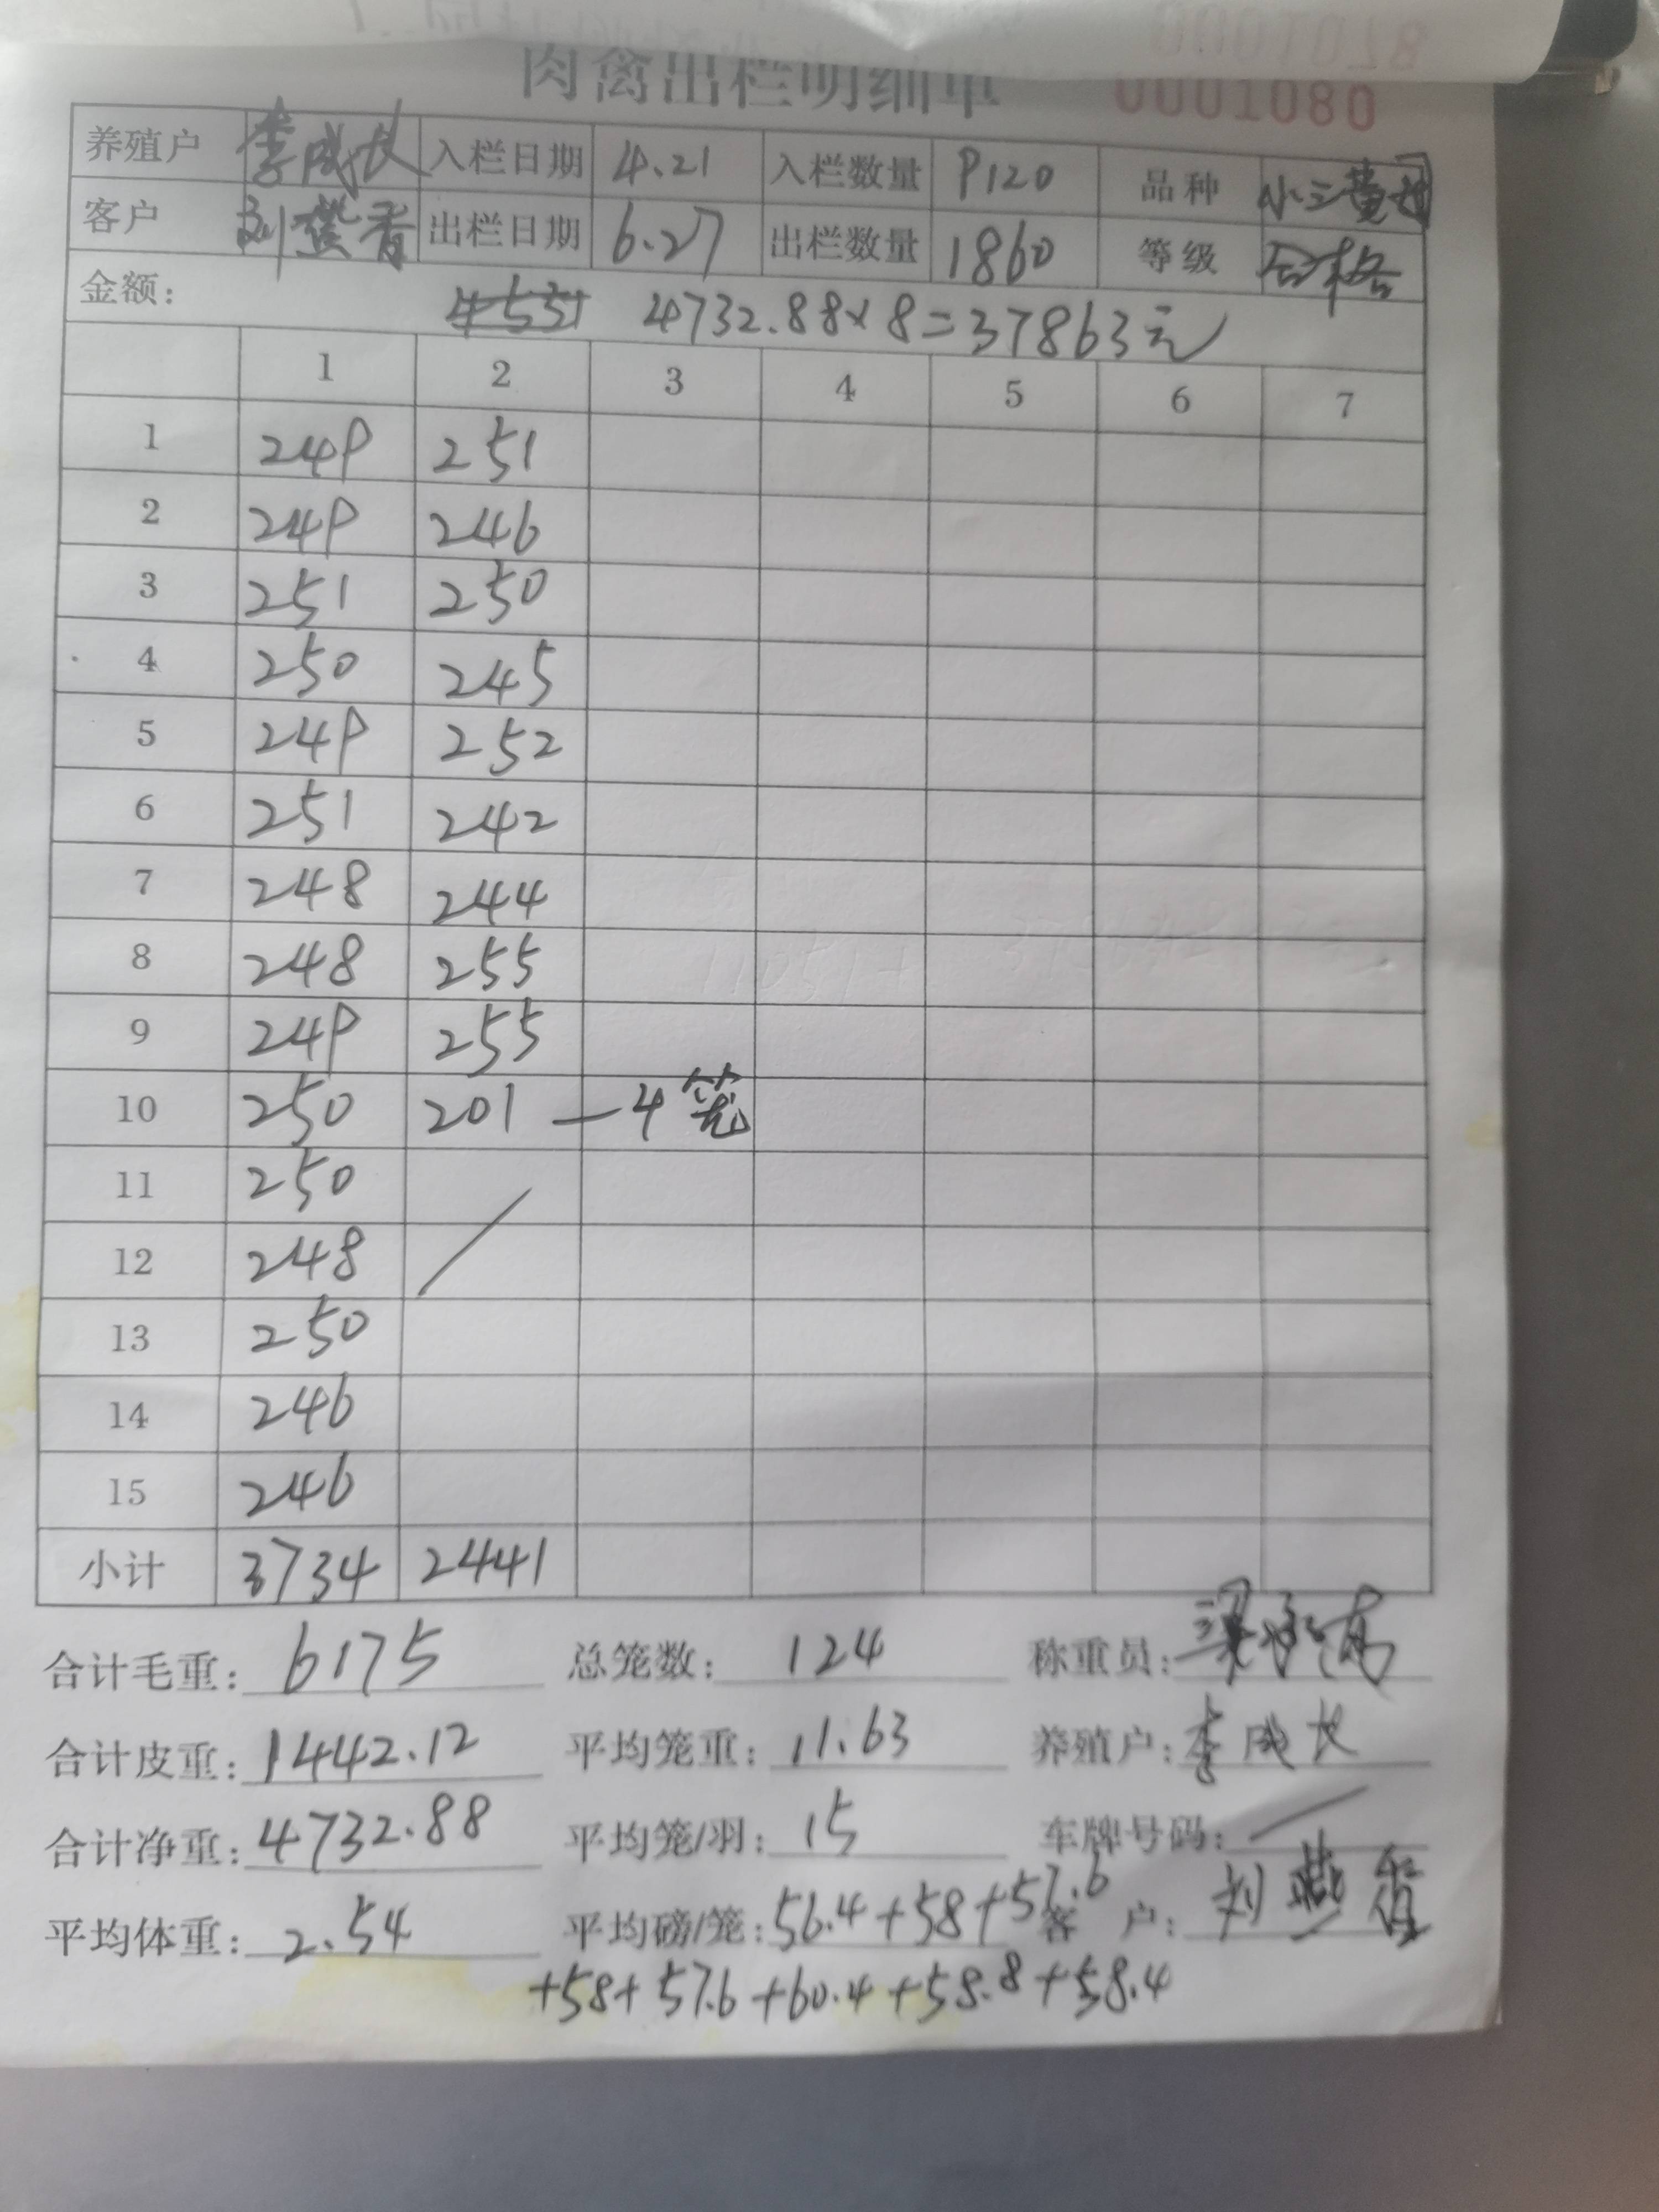 肉禽出栏明细单 0001080
养殖户 李成长 入栏日期 4.21 入栏数量 9120 品种 小三黄
客户 刘燕香 出栏日期 6.27 出栏数量 1860 等级 合格
金额: 4732.88×8=37863元
1 2 3 4 5 6 7
1 249 251
2 249 246
3 251 250
4 250 245
5 249 252
6 251 242
7 248 244
8 248 255
9 249 255
10 250 201 —4笼
11 250
12 248
13 250
14 246
15 246
小计 3734 2441
合计毛重: 6175 总笼数: 124 称重员: 梁
合计皮重: 1442.12 平均笼重: 11.63 养殖户: 李成长
合计净重: 4732.88 平均笼/羽: 15 车牌号码: /
平均体重: 2.54 平均磅/笼: 56.4+58+57.6 客户: 刘燕香
+58+57.6+60.4+58.8+58.4